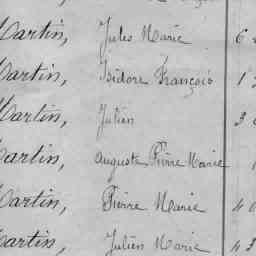 Martin, Jules Marie 6
Martin, Isidore François 1
Martin, Julien 3
Martin, Auguste Pierre Marie
Martin, Pierre Marie 40
Martin, Julien Marie 43